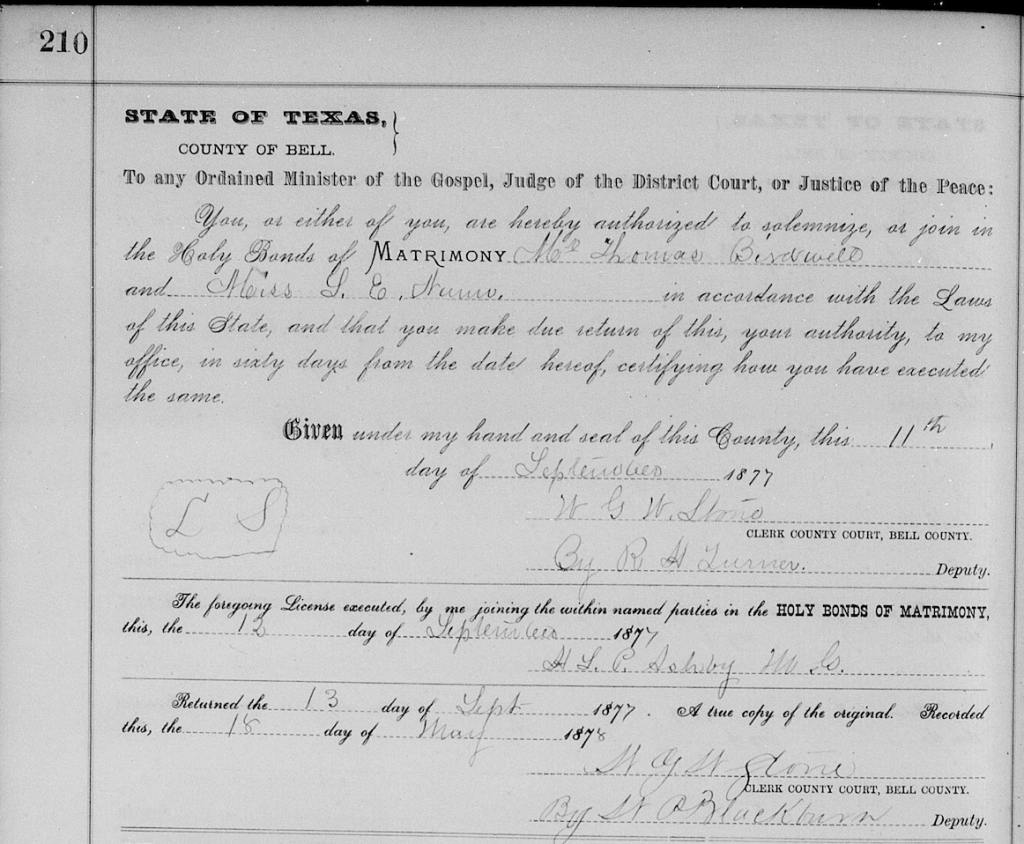 210
STATE OF TEXAS,
COUNTY OF BELL.
To any Ordained Minister of the Gospel, Judge of the District Court, or Justice of the Peace:
You, or either of you, are hereby authorized to solemnize, or join in
the Holy Bonds of MATRIMONY Mr Thomas Birdwell
and Miss S. E. Nunn. in accordance with the Laws
of this State, and that you make due return of this, your authority, to my
office, in sixty days from the date hereof, certifying how you have executed
the same.
Given under my hand and seal of this County, this 11th
day of September 1877
L S
W G W. Stone
CLERK COUNTY COURT, BELL COUNTY.
By R H Turner. Deputy.
The foregoing License executed, by me joining the within named parties in the HOLY BONDS OF MATRIMONY,
this, the 12 day of September 1877
H L. P. Ashby M G.
Returned the 13 day of Sept 1877. A true copy of the original. Recorded
this, the 18 day of May 1878
W G W Stone
CLERK COUNTY COURT, BELL COUNTY.
By W P Blackburn Deputy.